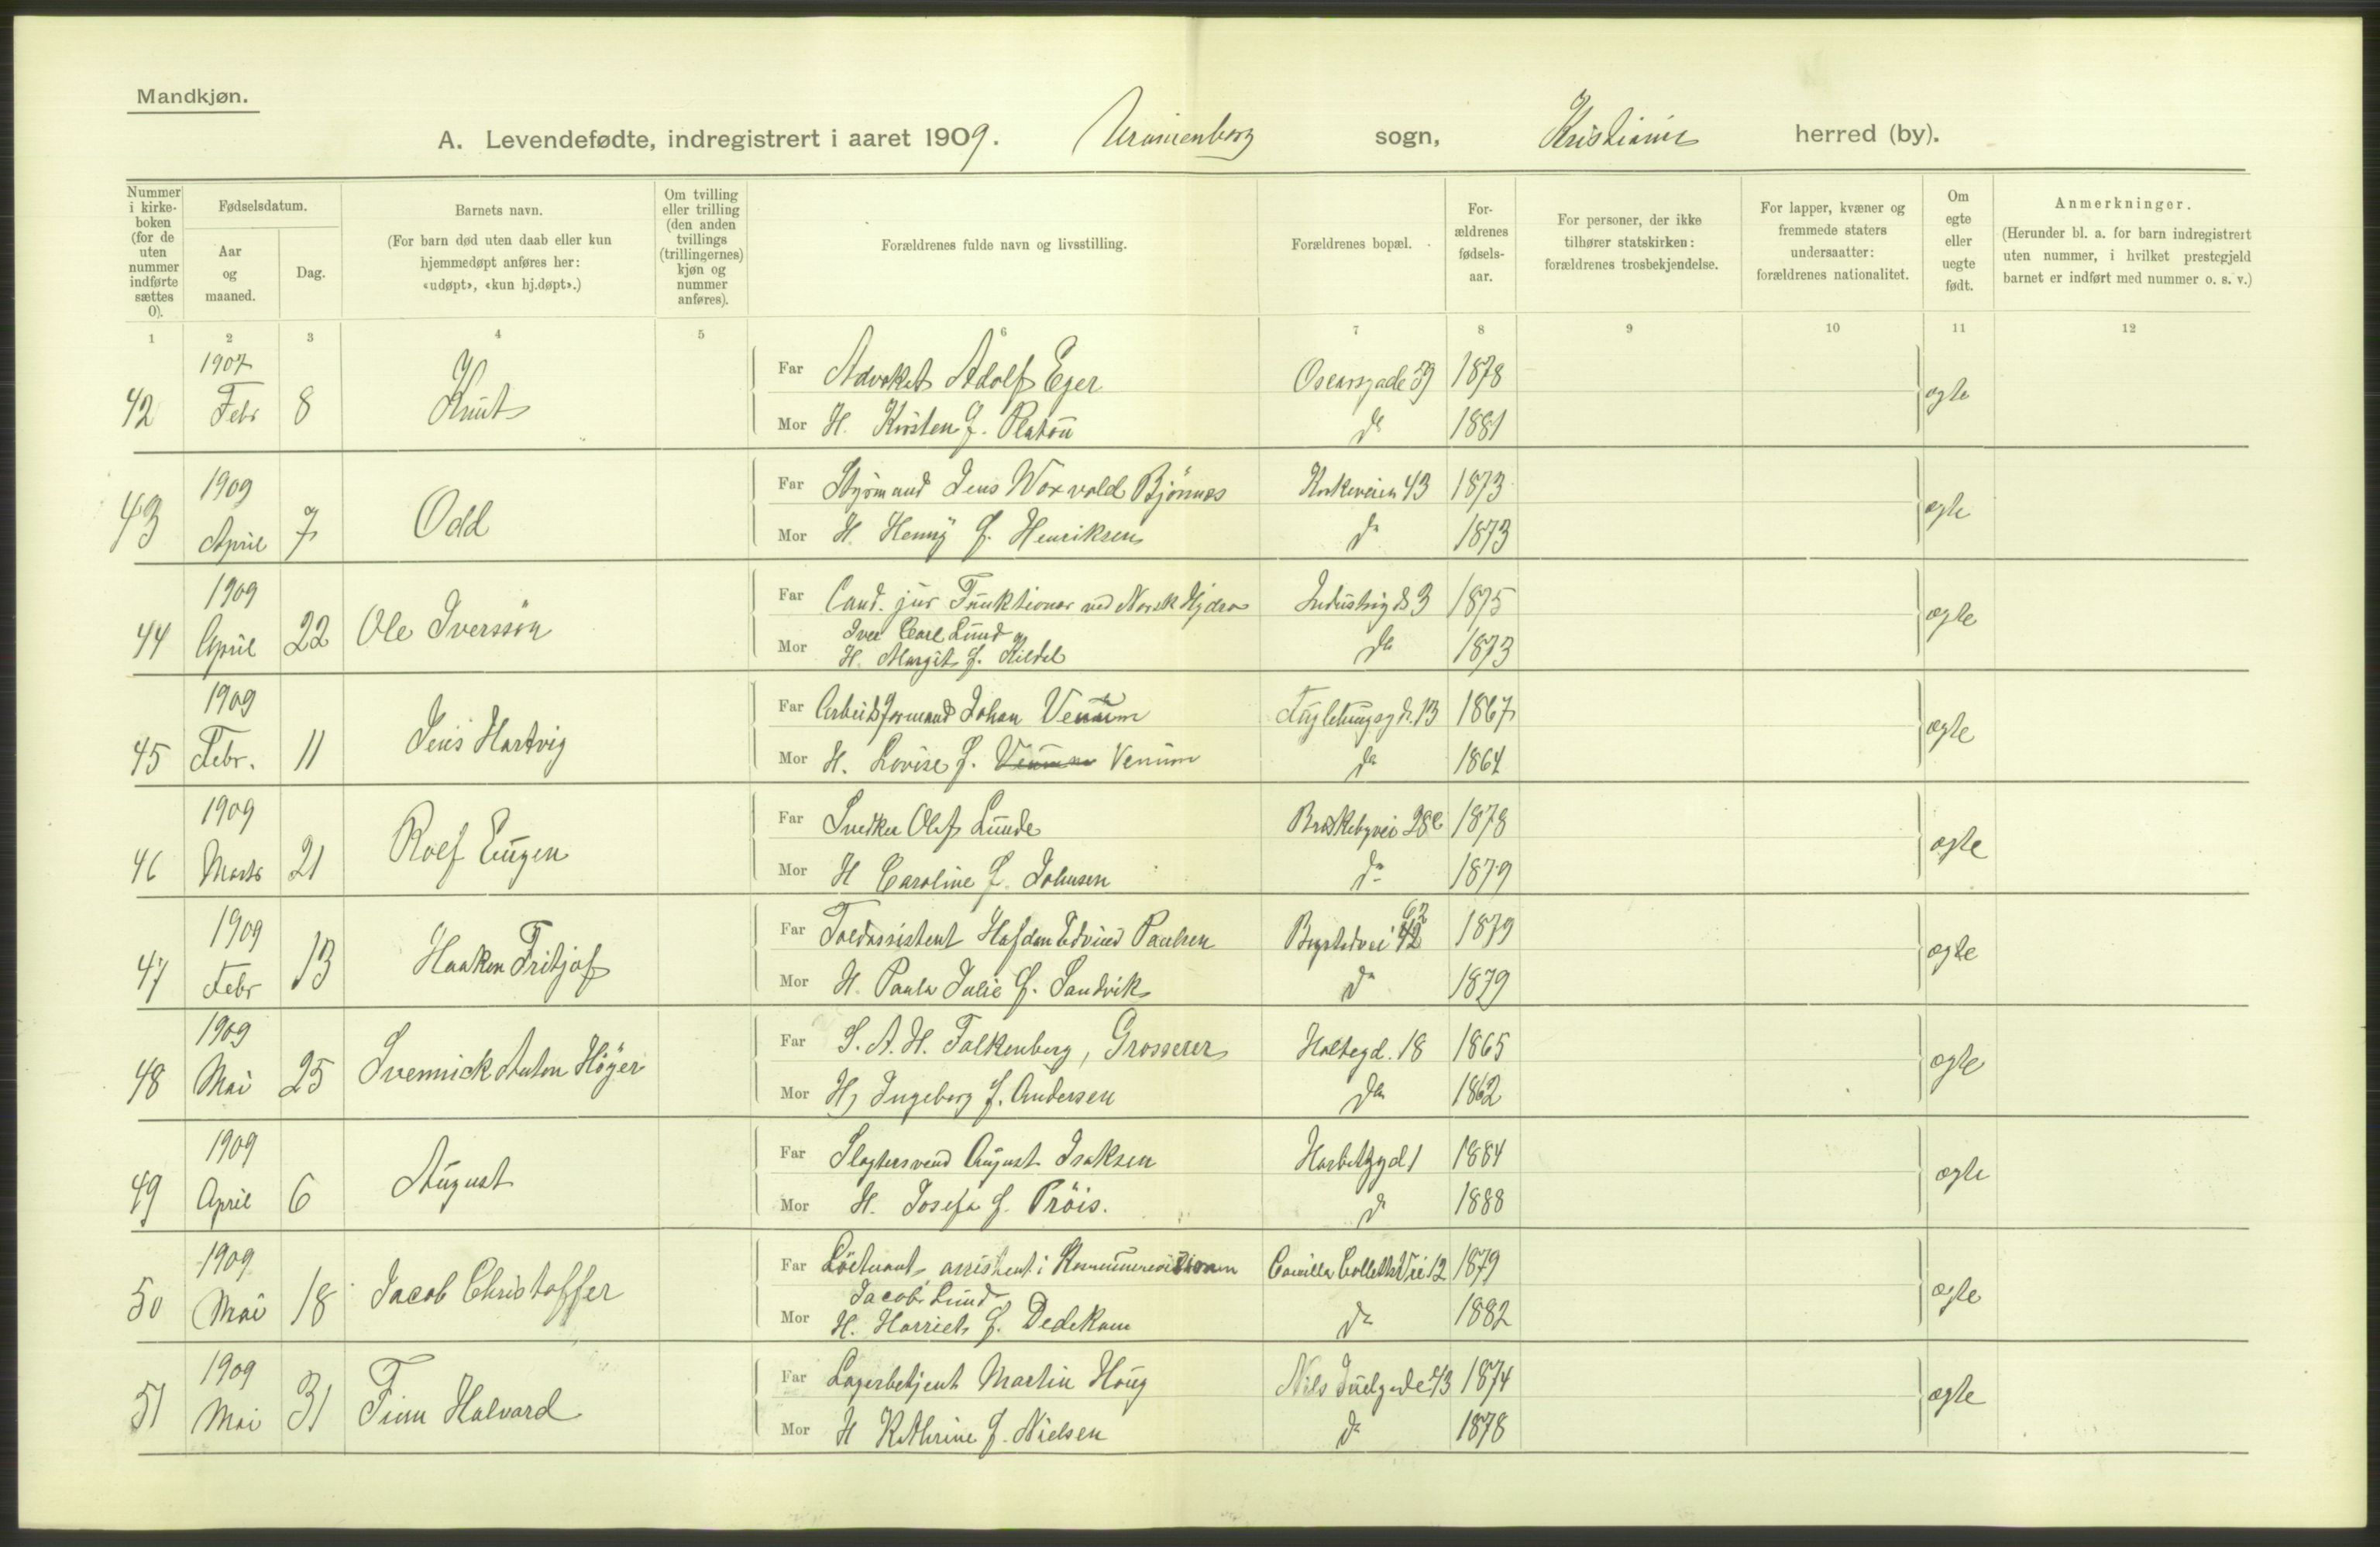 Mandkjøn.
A. Levendefødte, indregistrert i aaret 1909. Uranienborg sogn, Kristiania herred (by).
Nummer i kirke-boken (for de uten nummer indførte sættes 0).
Fødselsdatum.
Aar og maaned.
Dag.
Barnets navn.
(For barn død uten daab eller kun hjemmedøpt anføres her: «udøpt», «kun hj.døpt».)
Om tvilling eller trilling (den anden tvillings (trillingernes) kjøn og nummer anføres).
Forældrenes fulde navn og livsstilling.
Forældrenes bopæl.
For-ældrenes fødsels-aar.
For personer, der ikke tilhører statskirken: forældrenes trosbekjendelse.
For lapper, kvæner og fremmede staters undersaatter: forældrenes nationalitet.
Om egte eller uegte født.
Anmerkninger.
(Herunder bl. a. for barn indregistrert uten nummer, i hvilket prestegjeld barnet er indført med nummer o. s. v.)
1 2 3 4 5 6 7 8 9 10 11 12
1907 Far Advokat Adolf Eger Oscarsgade 59 1878
42 Febr 8 Knut Mor H. Kirsten f. Platou do 1881 ægte
1909 Far Styrmand Jens Woxvold Bjönnes Kirkeveien 43 1873
43 April 7 Odd Mor H. Henny f. Henriksen do 1873 ægte
1909 Far Cand. jur Funktionær ved Norsk Hydro Industrigd 3 1875
Iver Carl Lund
44 April 22 Ole Iverssön Mor H. Margit f. Kildal do 1873 ægte
1909 Far Arbeidsformand Johan Venum Fuglehaugsgd. 13 1867
45 Febr. 11 Jens Hartvig Mor H. Lovise f. Venum do 1864 ægte
1909 Far Snedker Olaf Lunde Briskebyvei 28e 1878
46 Marts 21 Rolf Eugen Mor H Caroline f. Johnsen do 1879 ægte
1909 Far Toldassistent Halfdan Edvind Paulsen Bogstadvei 62 1879
47 Febr 13 Haakon Fritjof Mor H. Paula Julie f. Sandvik do 1879 ægte
1909 Far S. A. H. Falkenberg, Grosserer Holtegd. 18 1865
48 Mai 25 Svennick Anton Höyer Mor H, Ingeborg f. Andersen do 1862 ægte
1909 Far Slagtersvend August Isaksen Harbitzgd 1 1884
49 April 6 August Mor H. Josefa f. Pröis. do 1888 ægte
1909 Far Löitnant, assistent i Kommunerevisionen Camilla Colletts Vei 12 1879
Jacob Lund
50 Mai 18 Jacob Christoffer Mor H. Harriet f. Dedekam do 1882 ægte
1909 Far Lagerbetjent Martin Houg Nils Juelgade 43 1874
51 Mai 31 Finn Halvard Mor H Kathrine f. Nielsen do 1878 ægte